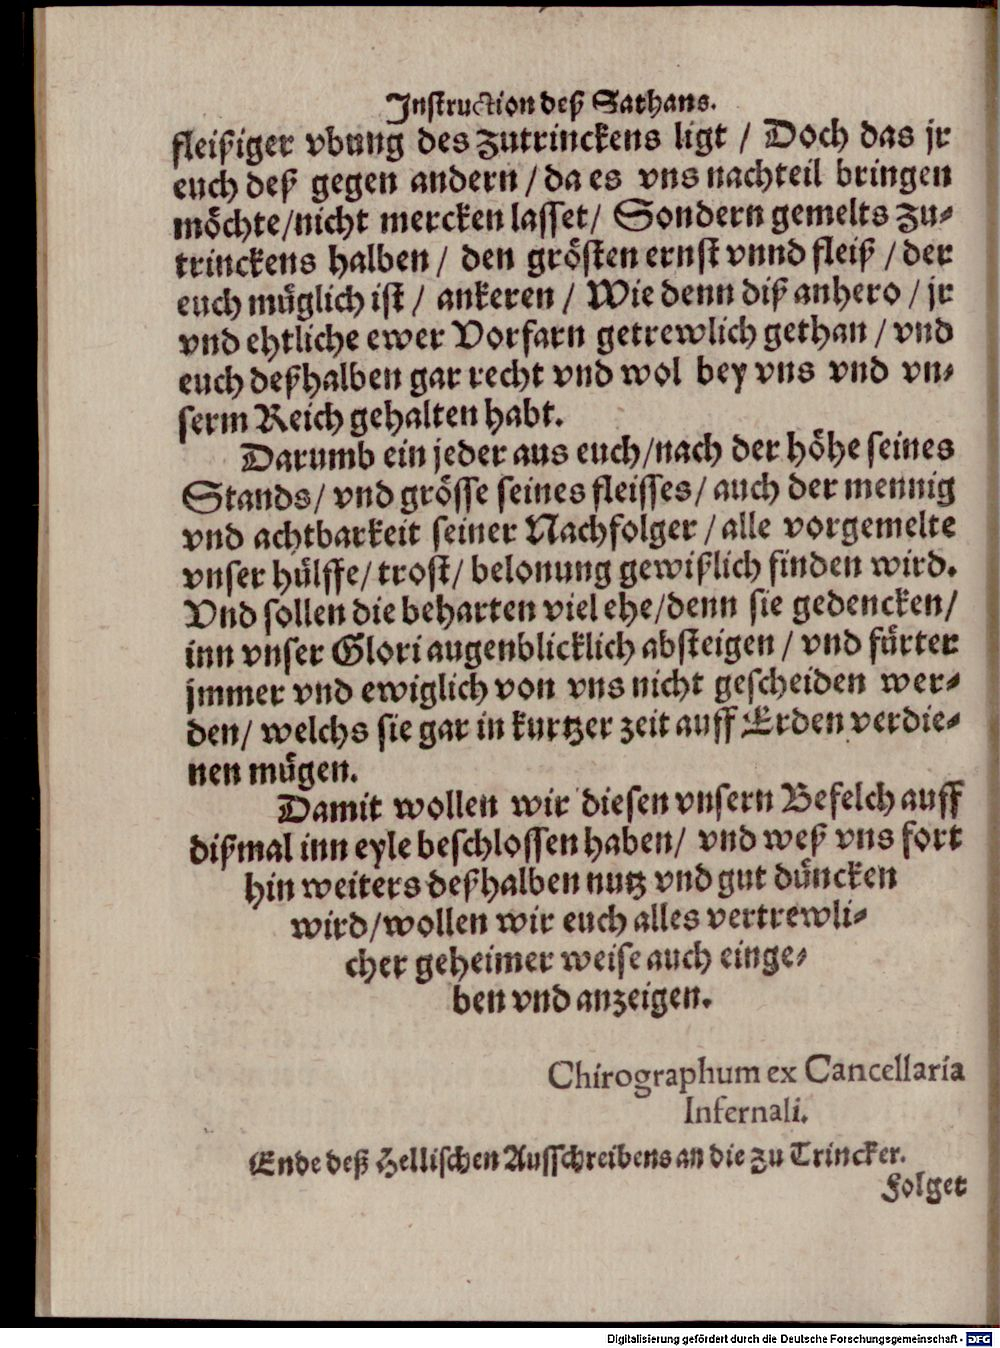 Instruction deß Sathans.
fleißiger vbung des zutrinckens ligt / Doch das jr
euch deß gegen andern / da es vns nachteil bringen
möchte / nicht mercken lasset / Sondern gemelts zu-
trinckens halben / den grösten ernst vnnd fleiß / der
euch müglich ist / ankeren / Wie denn diß anhero / jr
vnd ehtliche ewer Vorfarn getrewlich gethan / vnd
euch deßhalben gar recht vnd wol bey vns vnd vn-
serm Reich gehalten habt.
Darumb ein jeder aus euch / nach der höhe seines
Stands / vnd grösse seines fleisses / auch der mennig
vnd achtbarkeit seiner Nachfolger / alle vorgemelte
vnser hülffe / trost / belonung gewißlich finden wird.
Vnd sollen die beharten viel ehe / denn sie gedencken /
inn vnser Glori augenblicklich absteigen / vnd fürter
jmmer vnd ewiglich von vns nicht gescheiden wer-
den / welchs sie gar in kurtzer zeit auff Erden verdie-
nen mügen.
Damit wollen wir diesen vnsern Befelch auff
dißmal inn eyle beschlossen haben / vnd weß vns fort
hin weiters deßhalben nutz vnd gut düncken
wird / wollen wir euch alles vertrewli-
cher geheimer weise auch einge-
ben vnd anzeigen.
Chirographum ex Cancellaria
Infernali.
Ende deß Hellischen Ausschreibens an die zu Trincker.
Folget
Digitalisierung gefördert durch die Deutsche Forschungsgemeinschaft - DFG